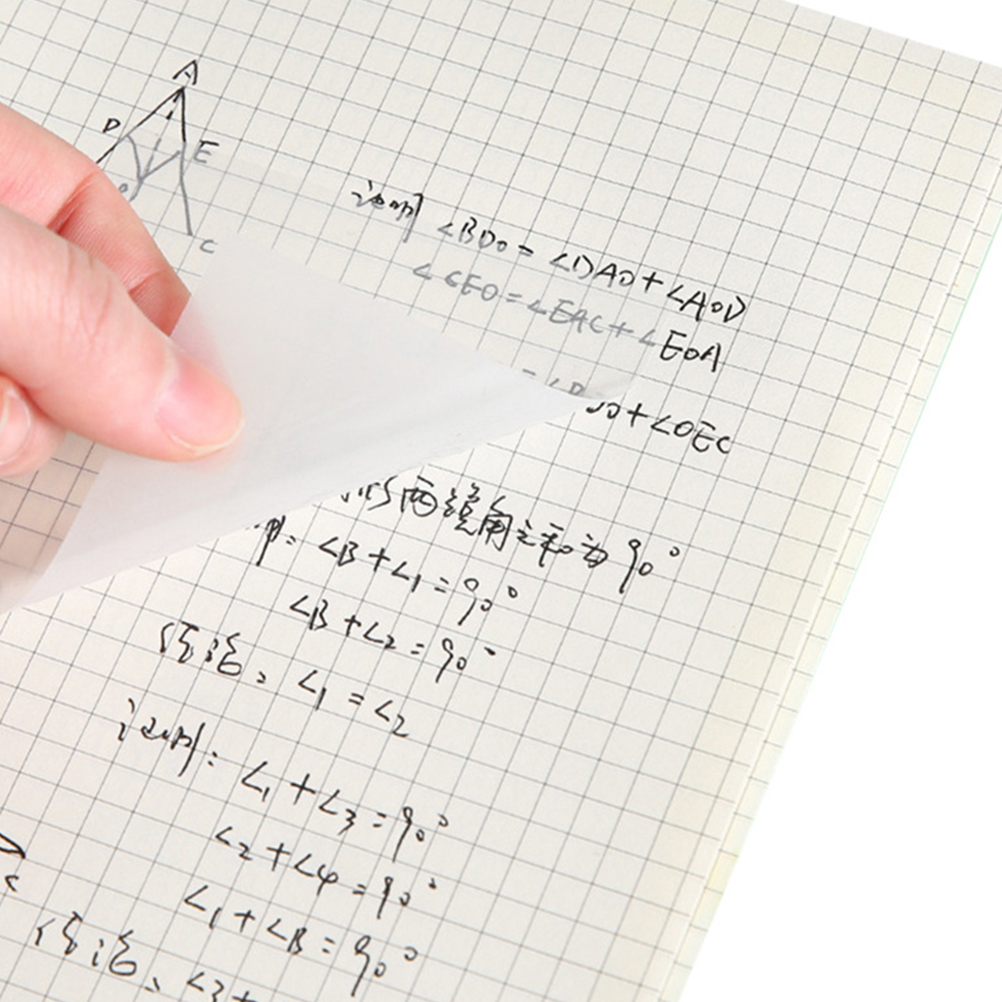 A
D
E
C
证明 ∠BDO = ∠DAO + ∠AOD
∠CEO = ∠EAC + ∠EOA
DO + ∠OEC
两锐角之和为90°
明: ∠B + ∠1 = 90°
∠B + ∠2 = 90°
结论: ∠1 = ∠2
证明: ∠1 + ∠3 = 90°
∠2 + ∠4 = 90°
∠1 + ∠B = 90°
C
结论: ∠3 +